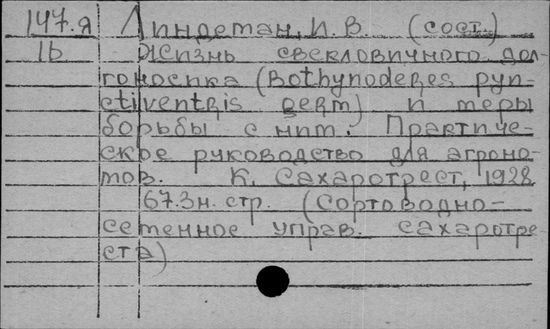 147.я Линдеман, И. В. (сост.)
1б Жизнь свекловичного дол-
гоносика (Bothynoderes pun-
ctiventris Germ) и меры
борьбы с ним. Практиче-
ское руководство для агроно-
мов. К. Сахаротрест, 1928
673н. стр. (Сортоводно-
семенное управ. сахаротре-
ста)